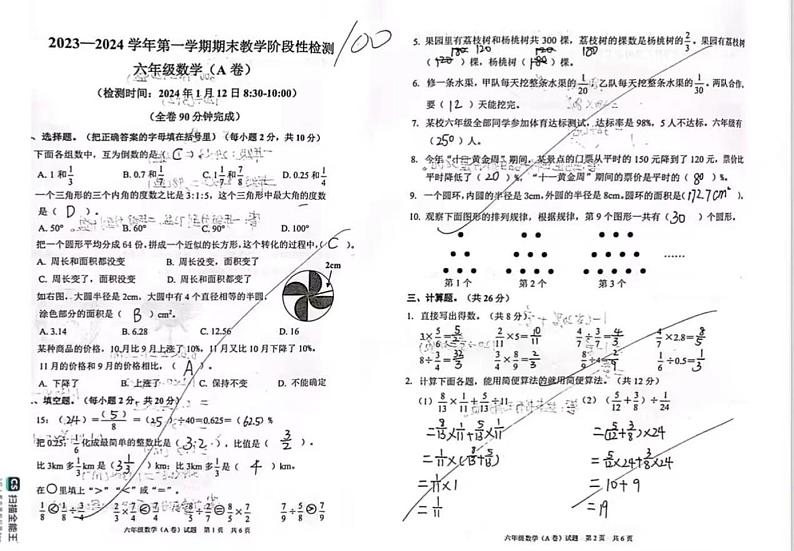 2023—2024 学年第一学期期末教学阶段性检测
100
六年级数学（A 卷）
（检测时间：2024 年 1 月 12 日 8:30-10:00）
（全卷 90 分钟完成）
、选择题。（把正确答案的字母填在括号里）（每小题 2 分，共 10 分）
下面各组数中，互为倒数的是（ C ）。
A. 1 和 1/3 B. 0.7 和 1/7 C. 1 1/7 和 7/8 D. 0.25 和 1/4
一个三角形的三个内角的度数之比是 3:1:5，这个三角形中最大角的度数
是（ D ）。
A. 50° B. 60° C. 90° D. 100°
把一个圆形平均分成 64 份，拼成一个近似的长方形，这个转化的过程中，（ C ）。
A. 周长和面积都没变 B. 周长没变，面积变了
C. 周长变了，面积没变 D. 周长和面积都变了
2cm
如右图，大圆半径是 2cm，大圆中有 4 个直径相等的半圆，
涂色部分的面积是（ B ）cm²。
A. 3.14 B. 6.28 C. 12.56 D. 16
某种商品的价格，10 月比 9 月上涨了 10%，11 月又比 10 月下降了 10%，
11 月的价格和 9 月的价格相比，（ A ）。
A. 下降了 B. 上涨了 C. 保持不变 D. 不能确定
、填空题。（每小题 2 分，共 20 分）
15:（24）=（5）/8=（25）÷40=0.625=（62.5）%
把 0.25: 1/6 化成最简单的整数比是（ 3:2 ），比值是（ 3/2 ）。
比 3km 多 1/3 km 是（ 3 1/3 ）km；比 3km 多 1/3 是（ 4 ）km。
在○里填上“>”“<”或“=”。
六年级数学（A 卷）试题 第 1 页 共 6 页
5. 果园里有荔枝树和杨桃树共 300 棵，荔枝树的棵数是杨桃树的 2/3。果园有荔枝树
（ 120 ）棵，杨桃树（ 180 ）棵。
6. 修一条水渠，甲队每天挖整条水渠的 1/20，乙队每天挖整条水渠的 1/30。两队合作，
要（ 12 ）天能挖完。
7. 某校六年级全部同学参加体育达标测试，达标率是 98%，5 人不达标。六年级有
（ 250 ）人。
8. 今年“十一黄金周”期间，某景点的门票从平时的 150 元降到了 120 元，票价比
平时降低了（ 20 ）%，“十一黄金周”期间的票价是平时的（ 80 ）%。
9. 一个圆环，内圆的半径是 3cm，外圆的半径是 8cm。圆环的面积是（172.7cm²）。
10. 观察下面图形的排列规律，根据规律，第 9 个图形一共有（ 30 ）个圆形。
第 1 个 第 2 个 第 3 个 ……
三、计算题。（共 26 分）
1. 直接写出得数。（共 8 分）
3×5/6=5/2 2/11×5=10/11 4/7÷3/7=4/3 4/7×2.8=8/5
8÷3/4=32/3 3/4×8/9=2/3 8/9÷4=2/9 1/6÷0.5=1/3
2. 计算下面各题，能用简便算法的就用简便算法。（共 12 分）
（1）8/13×1/11+5/13÷11 （2）（5/12+3/8）÷1/24
=8/13×1/11+5/13×1/11 =(5/12+3/8)×24
=1/11×(8/13+5/13) =5/12×24+3/8×24
=1/11×1 =10+9
=1/11 =19
六年级数学（A 卷）试题 第 2 页 共 6 页
CS 扫描全能王